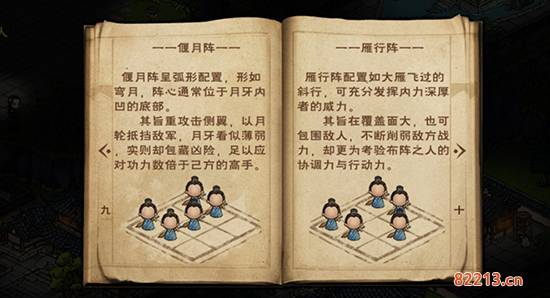 ——偃月阵——
偃月阵呈弧形配置，形如
弯月，阵心通常位于月牙内
凹的底部。
其旨重攻击侧翼，以月
轮抵挡敌军，月牙看似薄弱
，实则却包藏凶险，足以应
对功力数倍于己方的高手。
九
——雁行阵——
雁行阵配置如大雁飞过的
斜行，可充分发挥内力深厚
者的威力。
其旨在覆盖面大，也可
包围敌人，不断削弱敌方战
力，却更为考验布阵之人的
协调力与行动力。
十
82213.cn